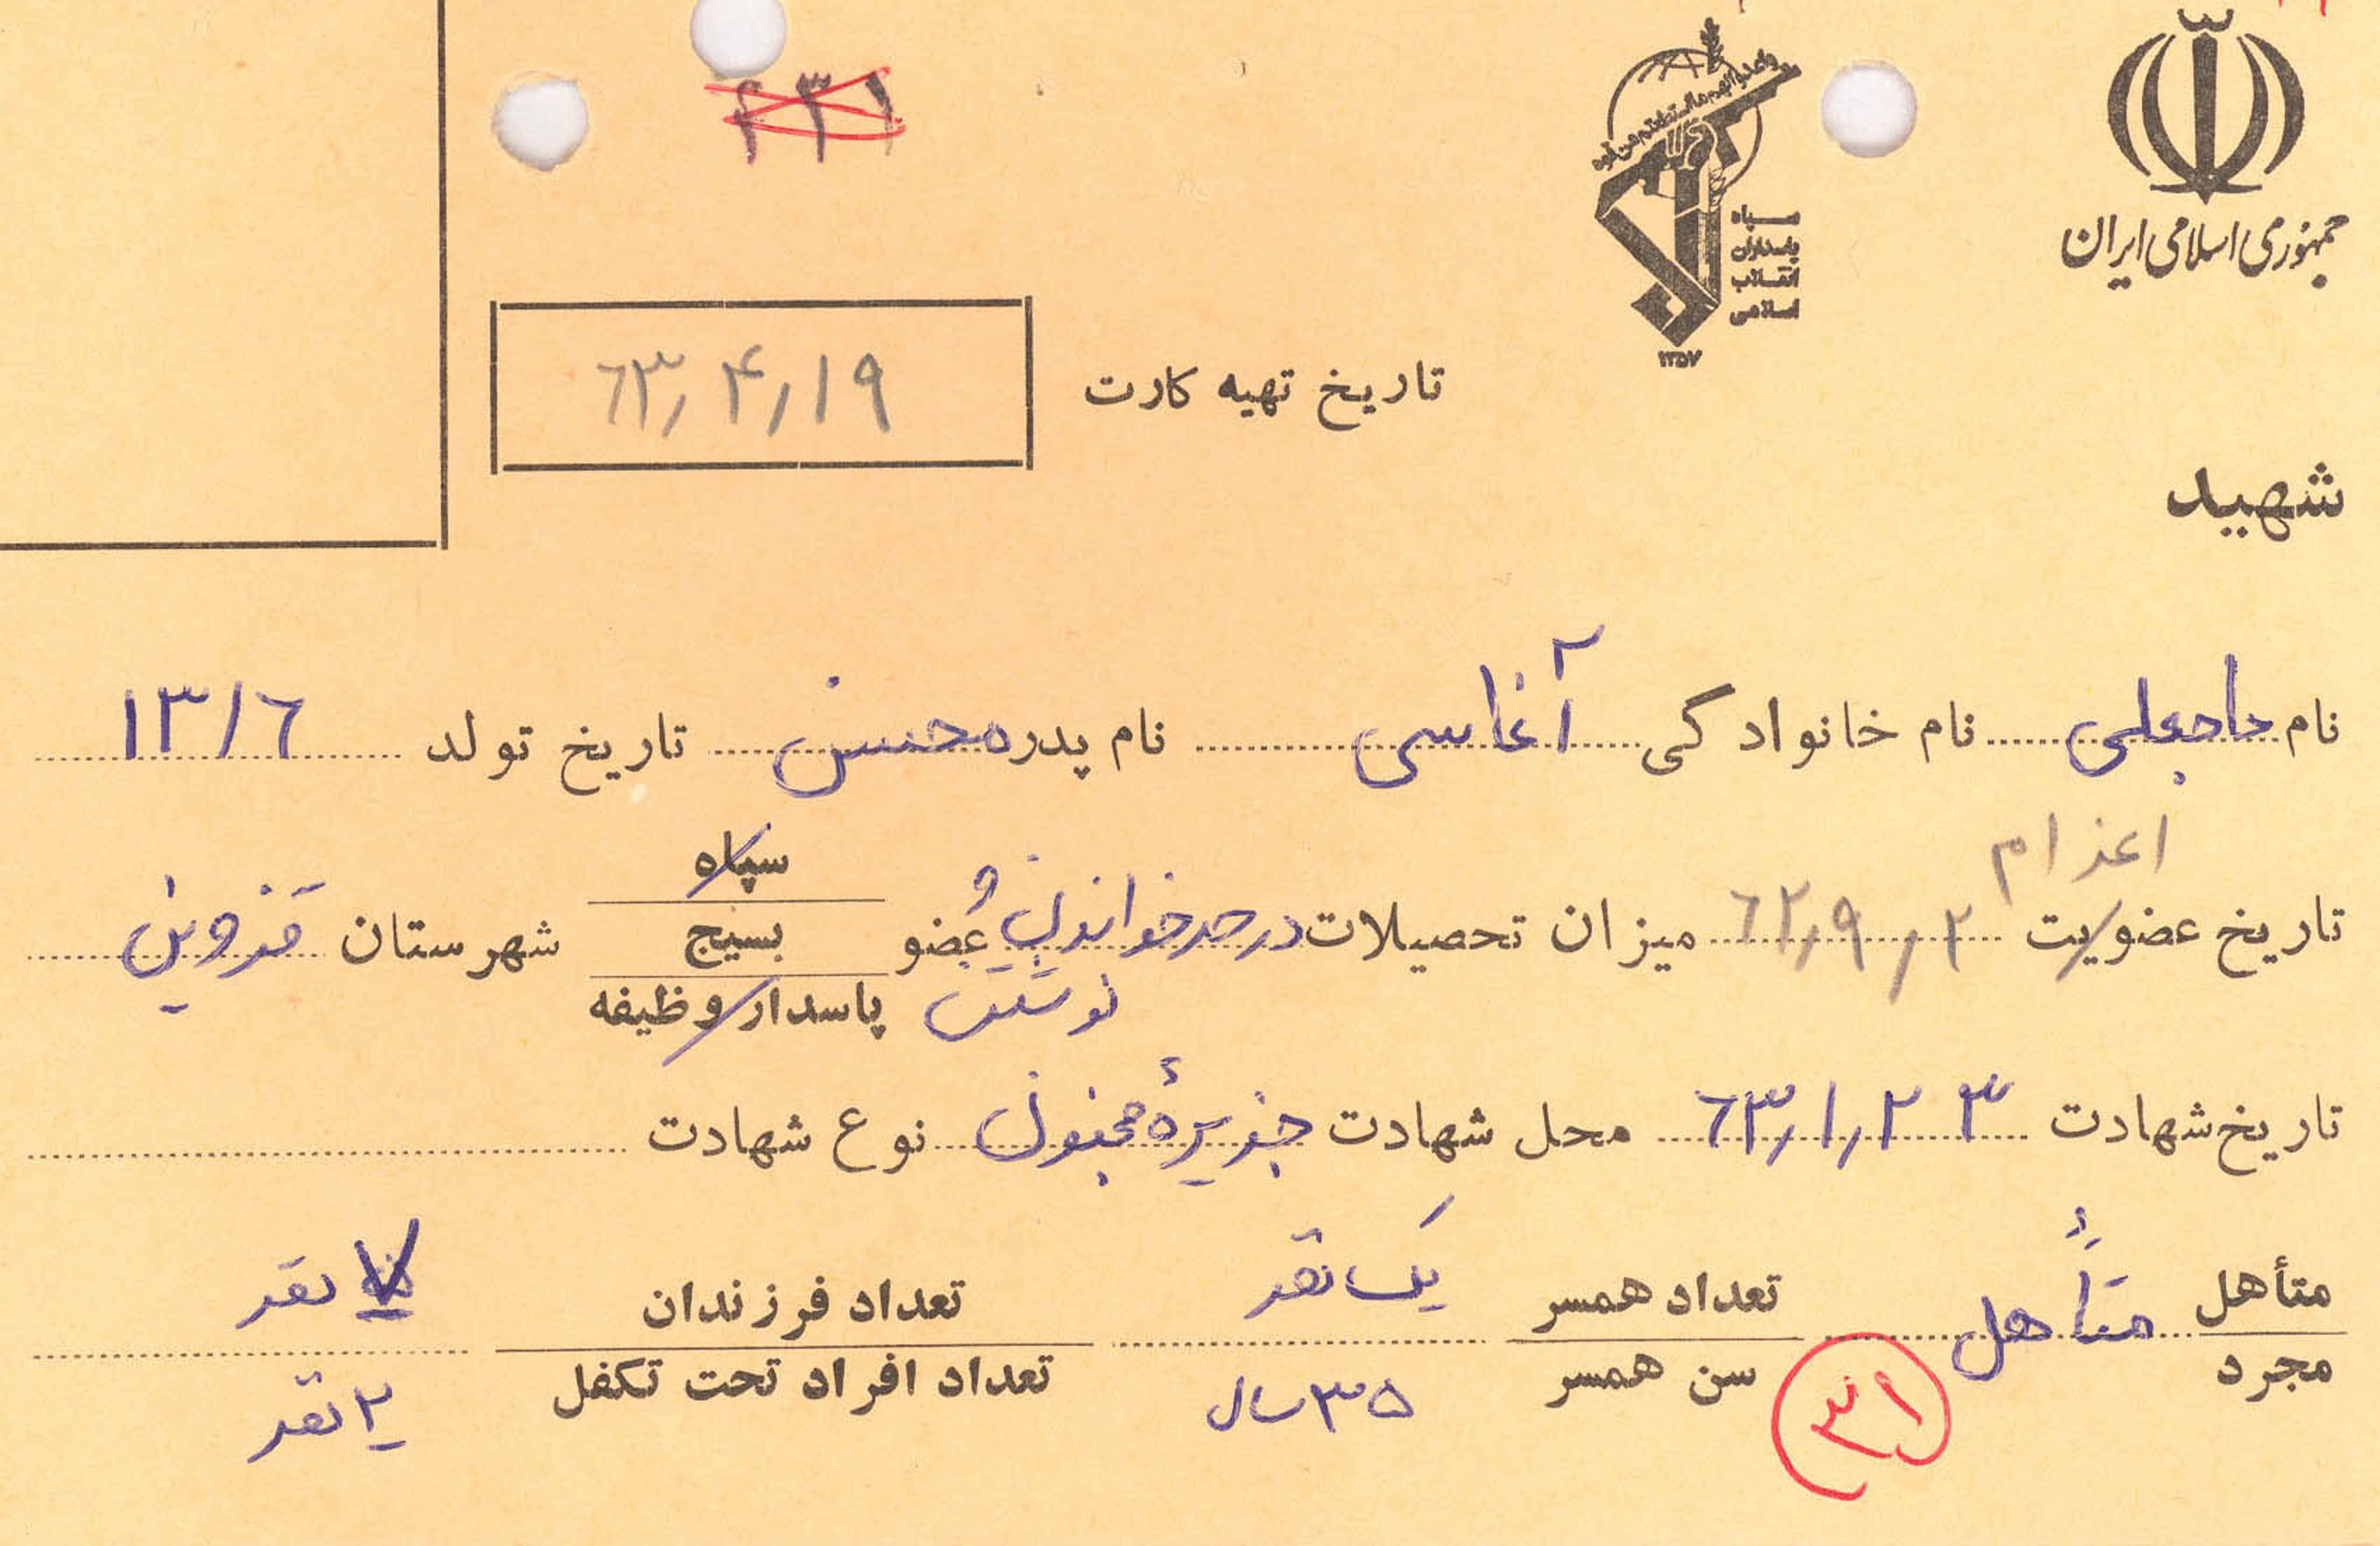 جمهوری اسلامی ایران
سپاه
پاسداران
انقلاب
اسلامی
۱۳۵۷
۲۳۱
تاریخ تهیه کارت ۶۳/۴/۱۹
شهید
نام حاجعلی نام خانوادگی آغاسی نام پدر محسن تاریخ تولد ۱۳۱۶
اعزام
تاریخ عضویت ۶۲/۹/۲ میزان تحصیلات در حد خواندن و نوشتن عضو سپاه بسیج پاسدار وظیفه شهرستان قزوین
تاریخ شهادت ۶۳/۱/۲۳ محل شهادت جزیرهٔ مجنون نوع شهادت
متأهل متأهل تعداد همسر یک نفر تعداد فرزندان ۷ نفر
مجرد ۳۱ سن همسر ۳۵ سال تعداد افراد تحت تکفل ۲ نفر